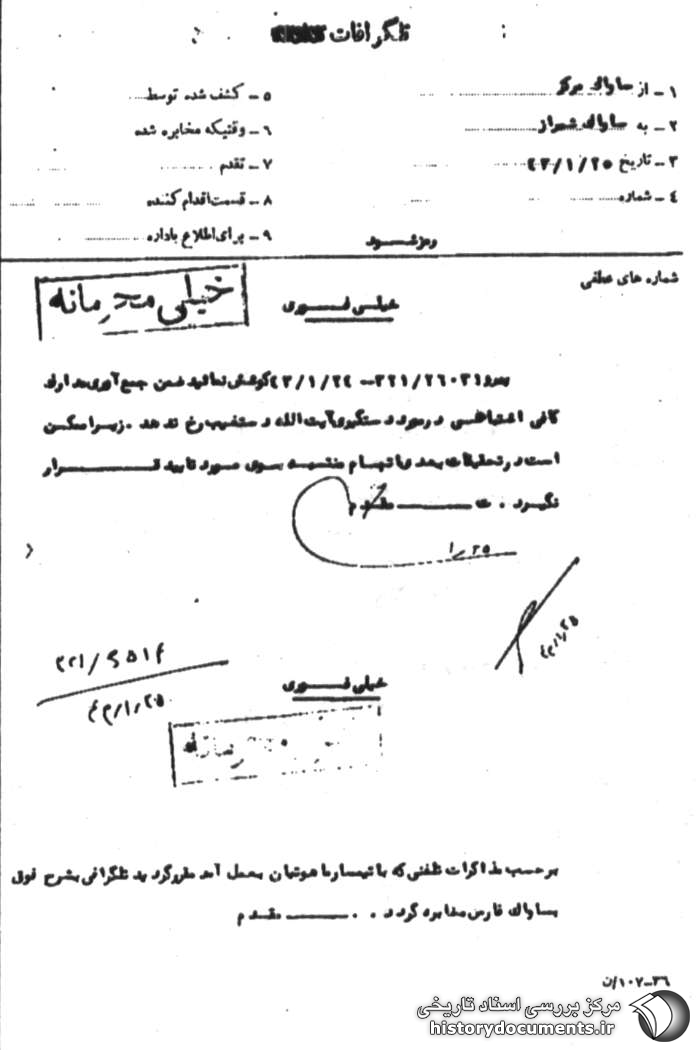 تلگرافات
۱ - از ساواک مرکز
۲ - به ساواک شیراز
۳ - تاریخ ۴۳/۱/۲۵
۴ - شماره
۵ - کشف شده توسط
۶ - وقتیکه مخابره شده
۷ - تقدم
۸ - قسمت اقدام کننده
۹ - برای اطلاع باداره
رمز شود
شماره های عطفی
خیلی فوری
خیلی محرمانه
۳۲۱/۲۶۰۳۱ - ۴۳/۱/۲۴ کوشش نمائید ضمن جمع آوری مدارک
کافی اشتباهی در مورد دستگیری آیت الله دستغیب رخ ندهد . زیرا ممکن
است در تحقیقات بعدی اتهام منتسبه بوی مورد تایید قرار
نگیرد . ت مقدم
۱/۲۵
۴۳/۱/۲۵
۴۳/۱/۲۵
خیلی فوری
بر حسب مذاکرات تلفنی که با تیمسار ماهوتیان بعمل آمد مقرر گردید تلگرافی بشرح فوق
بساواک فارس مخابره گردد . . مقدم
۳۶-۱۰۷/ن
مرکز بررسی اسناد تاریخی
historydocuments.ir